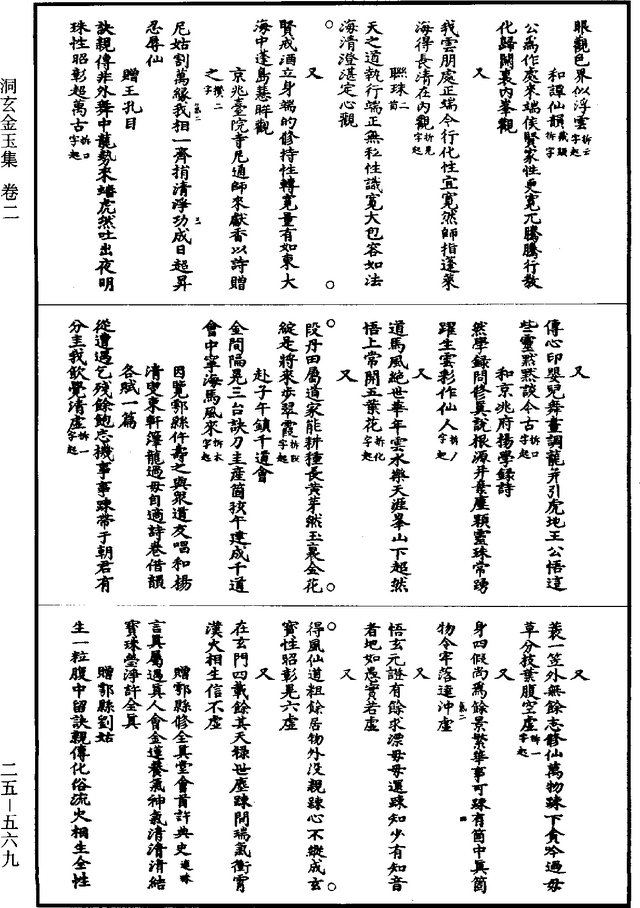 眼觀色界似浮雲拆云字起
和譚仙韻藏頭拆字
公為作處來端俟賢家性更寬冗騰騰行教
化歸開裏內峯觀
又
我雲朋處正端令行化性宜寬然師指蓬萊
海得長清在內觀拆見字起
聯珠二首
天之道執行端正無私性識寬大包容如法
海清澄湛定心觀
又
賢戒酒立身端的修持性轉寬量有如東大
海中蓬島慧眸觀
京兆臺院寺尼通師來獻香以詩贈
之攢二字
卷二 三
尼姑割萬緣我相一齊捐清淨功成日超昇
忍辱仙
贈王孔目
訣親傳非外舞中龍勢來蟠虎然吐出夜明
珠性昭彰超萬古拆口字起
又
傳心印嬰兒舞畫調龍并引虎地王公悟這
些靈黙黙談今古拆口字起
和京兆府楊學録詩
然學録問修真說根源并棄塵顆靈珠常踴
躍生雲彩作仙人拆丿字起
又
道馬風絕世華年雲水樂天涯峯山下超然
悟上常開五葉花拆化字起
又
段丹田屬道家能耕種長黄芽然玉裏金花
綻是將來步翠霞拆叚字起
赴子午鎮千道會
金間隔晃三台訣刀圭產箇孩午建成千道
會中寧海馬風來拆木字起
因覽鄠縣仵壽之與衆道友唱和楊
清叟東軒籜龍過母自適詩卷借韻
各賦一篇
從遭遇乞殘餘飽忘機事事踈帶子朝君有
分主我飲覺清虛拆一字起
又
蓑一笠外無餘志修仙萬物踈下貪吟過母
草分枝葉腹空虛拆一字起
又
身四假尚為餘景繁華事可踈有箇中真箇
卷二 四
物令牢落達沖虛
又
悟玄元謎有餘求漂母母還踈知少有知音
者地如愚實若虛
又
得風仙道粗餘居物外沒親踈心不縱成玄
寶性昭彰晃六虛
又
在玄門四載餘其天祿世塵踈開瑞氣衝霄
漢火相生信不虛
贈鄠縣修全真堂會首許典史連珠
言真屬遇真人會金蓮養氣神氣清清清結
寶珠瑩淨許全真
贈鄠縣劉姑
生一粒腹中留訣親傳化俗流火相生全性
洞玄金玉集 卷二
二五—五六九